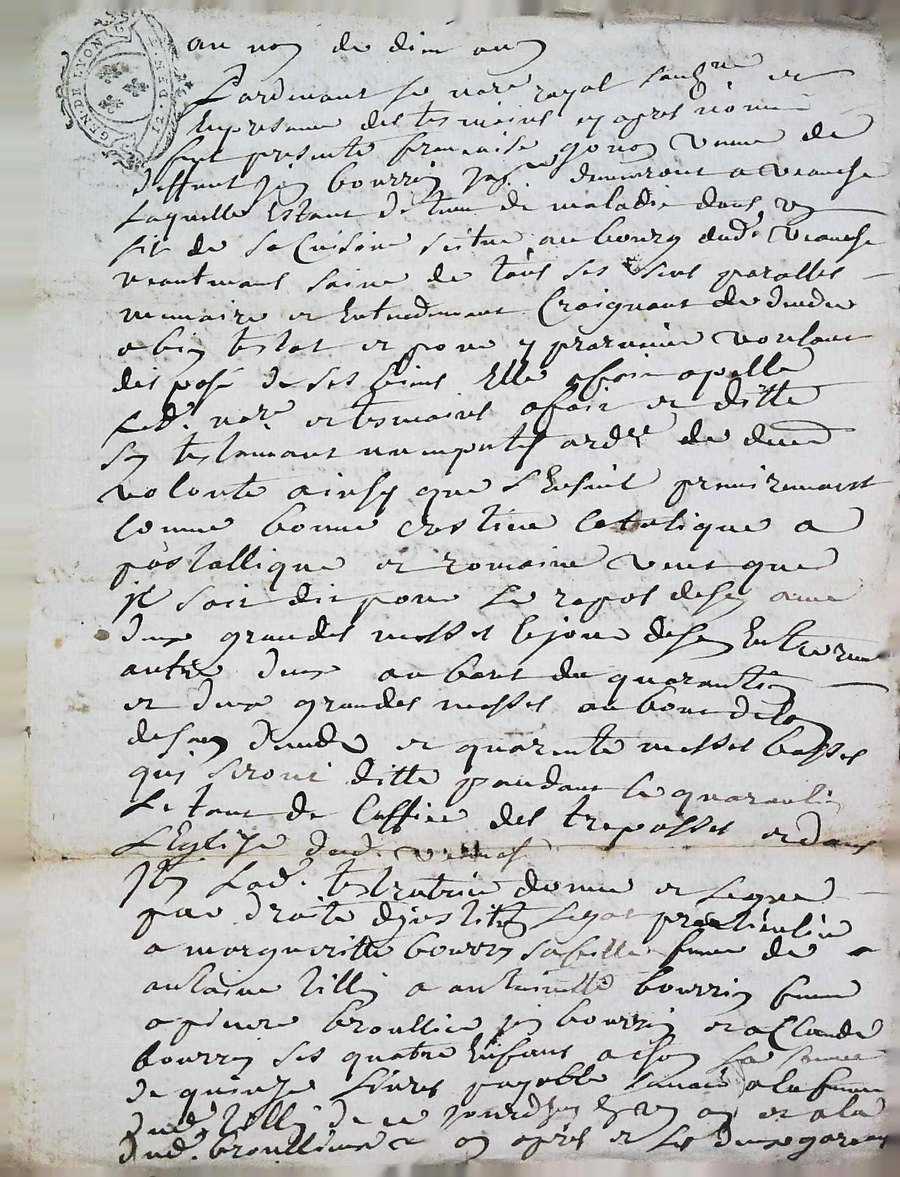 GEN. DE LYON
au nom de dieu amen
Pardevant le no.re royal soub.ne et
En presance des tesmoins cy apres nomme
fut presente francoise gonon veuve de
deffunt jn bourrin demeurant a veauche
Laquelle Estant detenue de maladie dans un
lit de sa Cuisine scitue au bourg dud. veauche
neantmoins saine de tous ses sens parolles
memoire et Entendement Craignant de deceder
abintestat et pour y prevenir voulant
disposé de ses biens Elle a fait apelle
led. no.re et tesmoins a fair et ditte
son testamant noncupatif de derniere
volonte ainsy que s'Ensuit premieremant
comme bonne crestiene catolique a
postallique et romaine veut que
il soit dit pour le repos de son ame
deux grandes messes le jour de son Enterrem
autre deux au bout du quarantin
et deux grandes messes au bout de lan
de son deceds et quarente messes basses
qui seront ditte pandant le quarantin
Le tout de l'office des trepasses et dans
L'Eglize dud.
Jtem Lad. testatrice donne et legue
par droite d'jnstit.on Legat particulier
a margueritte bourrin sa fille femme de
antoine tilli a antoinette bourrin femme
a pierre broullier jn bourrin et a Claude
bourrin ses quatre Enfans a chn La somme
de quinze Livres payable scavoir a la femme
dud. tilli de ce jourdhuy En un an et a la
dud. broullier un an apres et les deux garcons